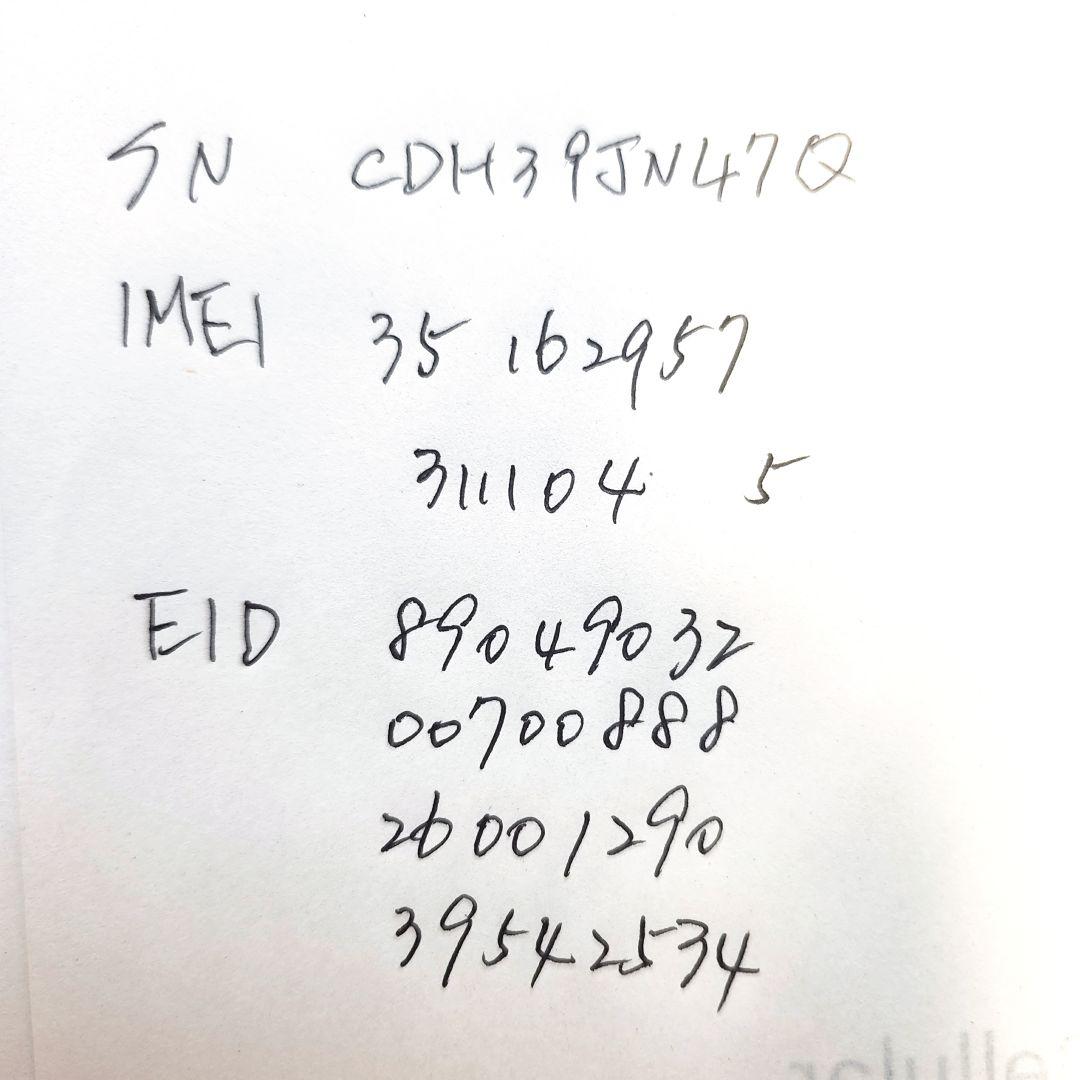 SN CDH39JN47Q
IMEI 35 162957
311104 5
EID 89049032
00700888
26001290
39542534